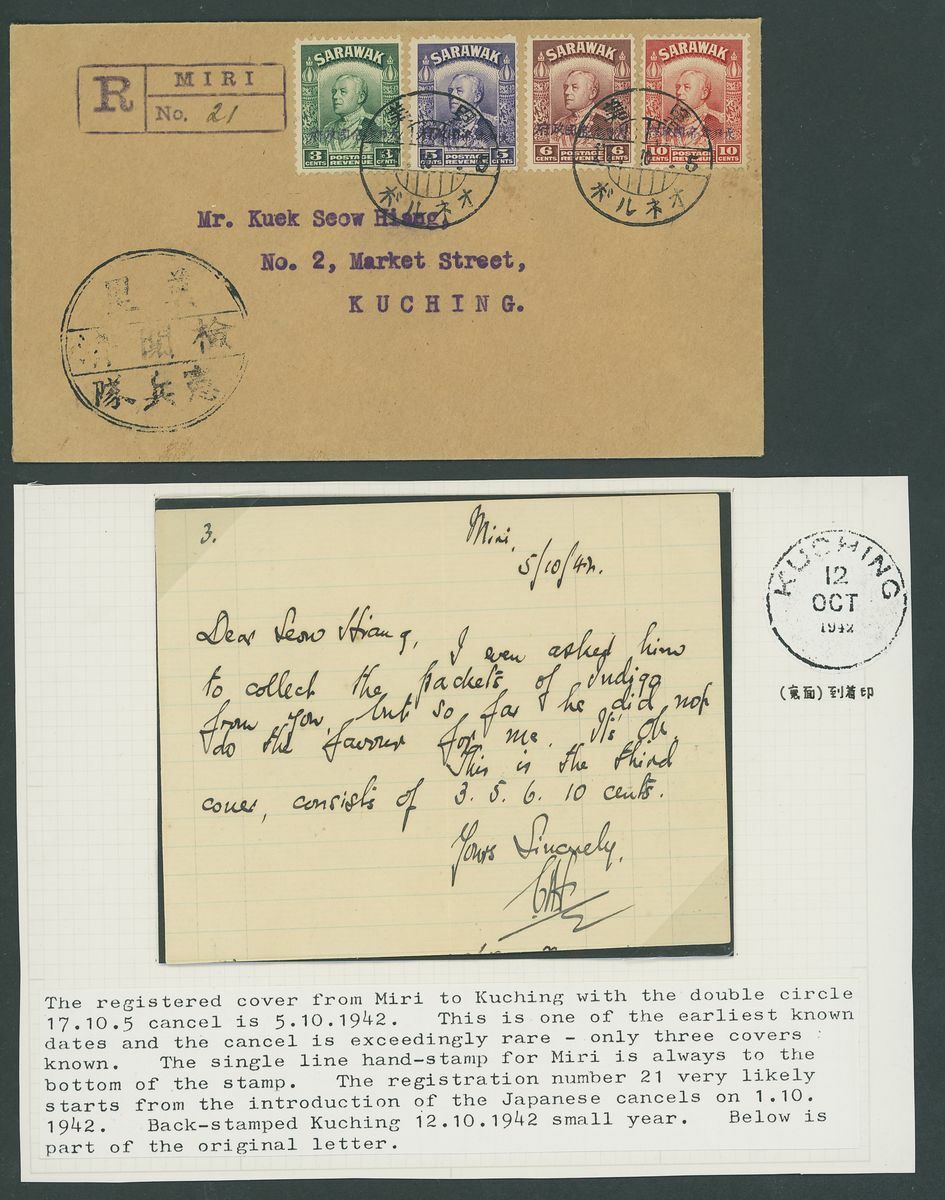 R MIRI
No. 21
SARAWAK SARAWAK SARAWAK SARAWAK
3 CENTS POSTAGE REVENUE 3 CENTS
5 CENTS POSTAGE REVENUE 5 CENTS
6 CENTS POSTAGE REVENUE 6 CENTS
10 CENTS POSTAGE REVENUE 10 CENTS
ボルネオ
ボルネオ
Mr. Kuek Seow Hiang,
No. 2, Market Street,
KUCHING.
里美
檢閲濟
隊兵憲
3. Miri,
5/10/42.
Dear Seow Hiang,
I even asked him
to collect the packets of Indigo
from you, but so far he did not
do the favour for me. It's Ok.
This is the third
cover, consists of 3. 5. 6. 10 cents.
Yours Sincerely,
KUCHING
12
OCT
1942
(裏面)到着印
The registered cover from Miri to Kuching with the double circle
17.10.5 cancel is 5.10.1942. This is one of the earliest known
dates and the cancel is exceedingly rare - only three covers
known. The single line hand-stamp for Miri is always to the
bottom of the stamp. The registration number 21 very likely
starts from the introduction of the Japanese cancels on 1.10.
1942. Back-stamped Kuching 12.10.1942 small year. Below is
part of the original letter.